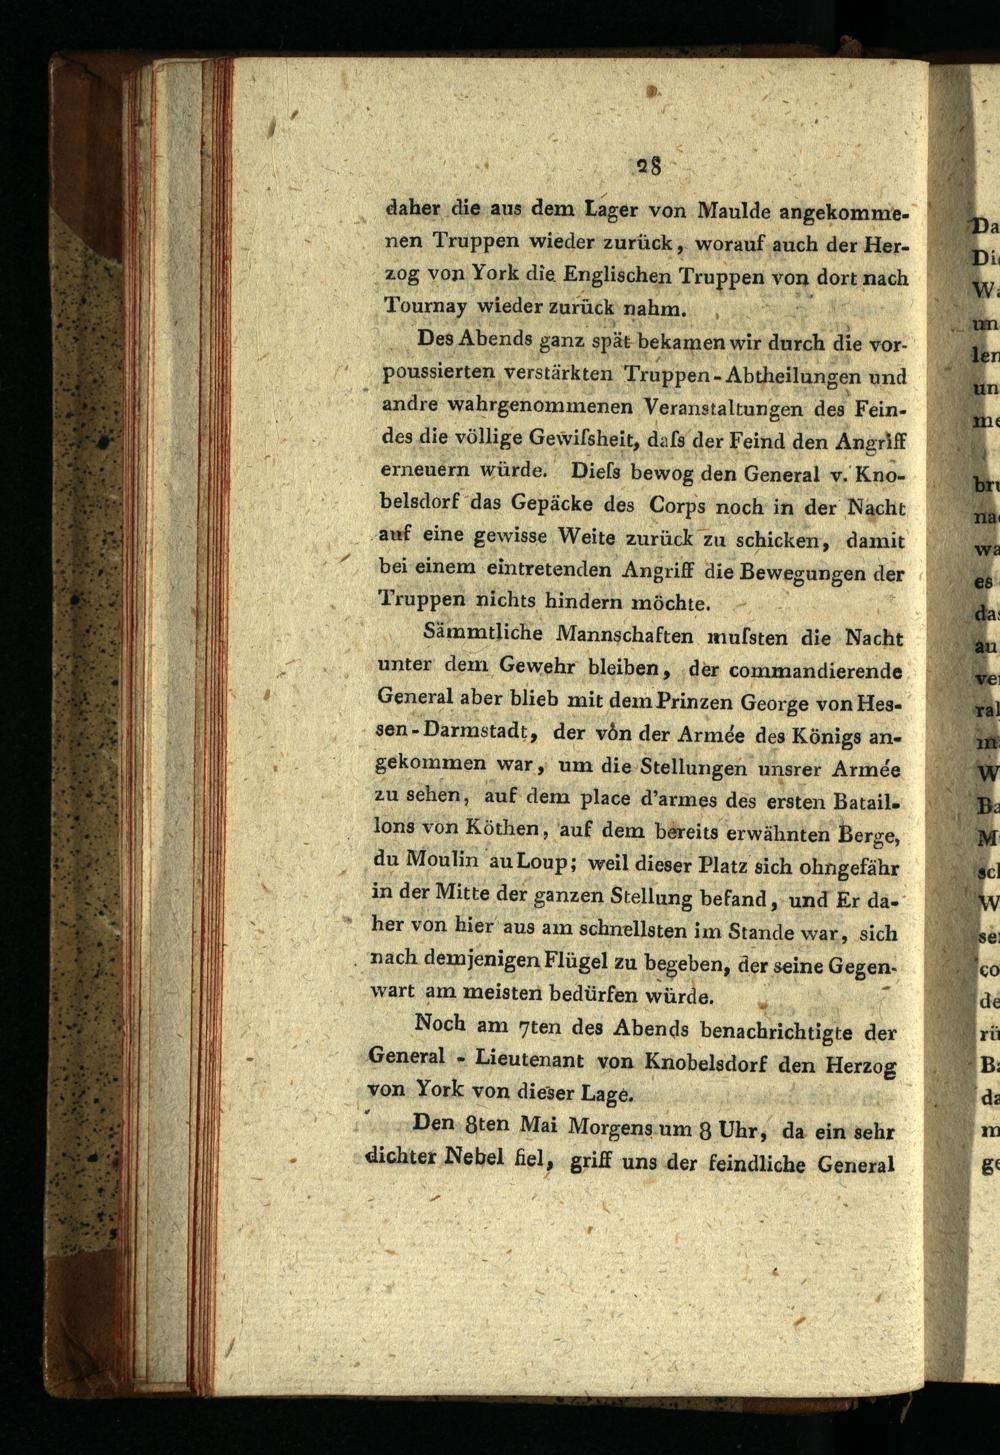 28
daher die aus dem Lager von Maulde angekomme-
nen Truppen wieder zurück, worauf auch der Her-
zog von York die Englischen Truppen von dort nach
Tournay wieder zurück nahm.
Des Abends ganz spät bekamen wir durch die vor-
poussierten verstärkten Truppen-Abtheilungen und
andre wahrgenommenen Veranstaltungen des Fein-
des die völlige Gewiſsheit, daſs der Feind den Angriff
erneuern würde. Dieſs bewog den General v. Kno-
belsdorf das Gepäcke des Corps noch in der Nacht
auf eine gewisse Weite zurück zu schicken, damit
bei einem eintretenden Angriff die Bewegungen der
Truppen nichts hindern möchte.
Sämmtliche Mannschaften muſsten die Nacht
unter dem Gewehr bleiben, der commandierende
General aber blieb mit dem Prinzen George von Hes-
sen-Darmstadt, der von der Armée des Königs an-
gekommen war, um die Stellungen unsrer Armée
zu sehen, auf dem place d'armes des ersten Batail-
lons von Köthen, auf dem bereits erwähnten Berge,
du Moulin au Loup; weil dieser Platz sich ohngefähr
in der Mitte der ganzen Stellung befand, und Er da-
her von hier aus am schnellsten im Stande war, sich
nach demjenigen Flügel zu begeben, der seine Gegen-
wart am meisten bedürfen würde.
Noch am 7ten des Abends benachrichtigte der
General - Lieutenant von Knobelsdorf den Herzog
von York von dieser Lage.
Den 8ten Mai Morgens um 8 Uhr, da ein sehr
dichter Nebel fiel, griff uns der feindliche General